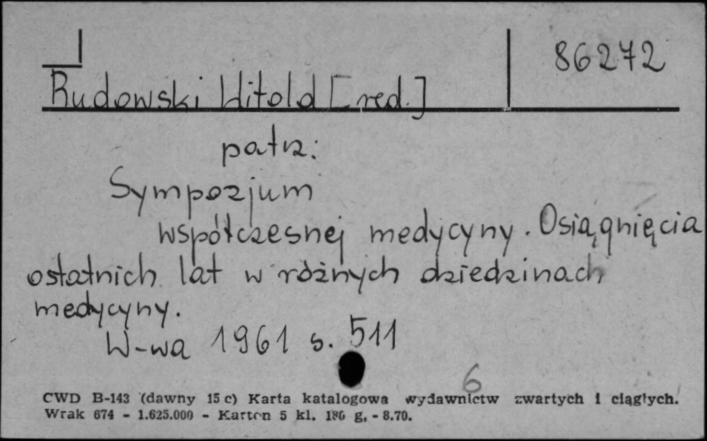 86272
Rudowski Witold [red.]
patrz:
Sympozjum
współczesnej medycyny. Osiągnięcia
ostatnich lat w różnych dziedzinach
medycyny.
W-wa 1961 s. 511
6
CWD B-143 (dawny 15 c) Karta katalogowa wydawnictw zwartych i ciągłych.
Wrak 674 - 1.625.000 - Karton 5 kl. 180 g. - 8.70.